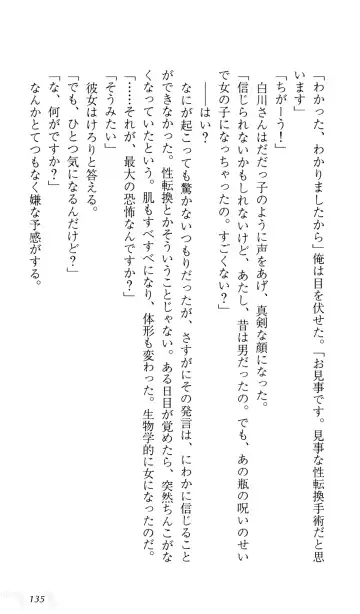 「わかった、わかりましたから」俺は目を伏せた。「お見事です。見事な性転換手術だと思
います」
「ちがーう!」
白川さんはだだっ子のように声をあげ、真剣な顔になった。
「信じられないかもしれないけど、あたし、昔は男だったの。でも、あの瓶の呪いのせい
で女の子になっちゃったの。すごくない?」
――はい?
なにが起こっても驚かないつもりだったが、さすがにその発言は、にわかに信じること
ができなかった。性転換とかそういうことじゃない。ある日目が覚めたら、突然ちんこがな
くなっていたという。肌もすべすべになり、体形も変わった。生物学的に女になったのだ。
「……それが、最大の恐怖なんですか?」
「そうみたい」
彼女はけろりと答える。
「でも、ひとつ気になるんだけど?」
「な、何がですか?」
なんかとてつもなく嫌な予感がする。
135